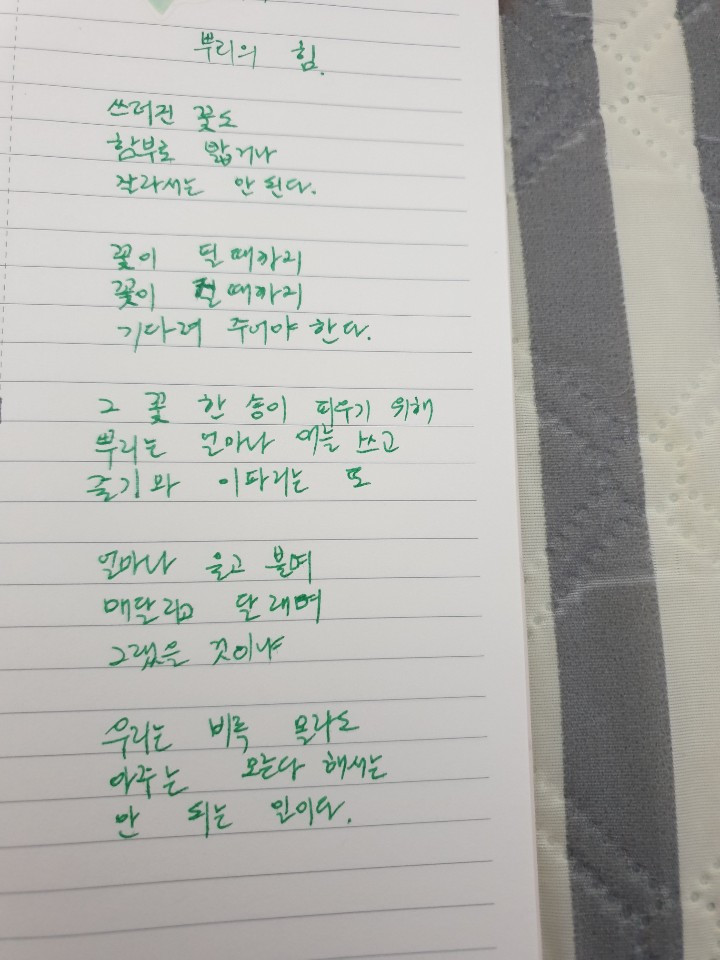 뿌리의 힘.
쓰러진 꽃도
함부로 밟거나
잘라서는 안 된다.
꽃이 필 때까지
꽃이 질 때까지
기다려 주어야 한다.
그 꽃 한 송이 피우기 위해
뿌리는 얼마나 애를 쓰고
줄기와 이파리는 또
얼마나 울고 불며
매달리고 달래며
그랬을 것이냐
우리는 비록 몰라도
아주는 모른다 해서는
안 되는 일이다.